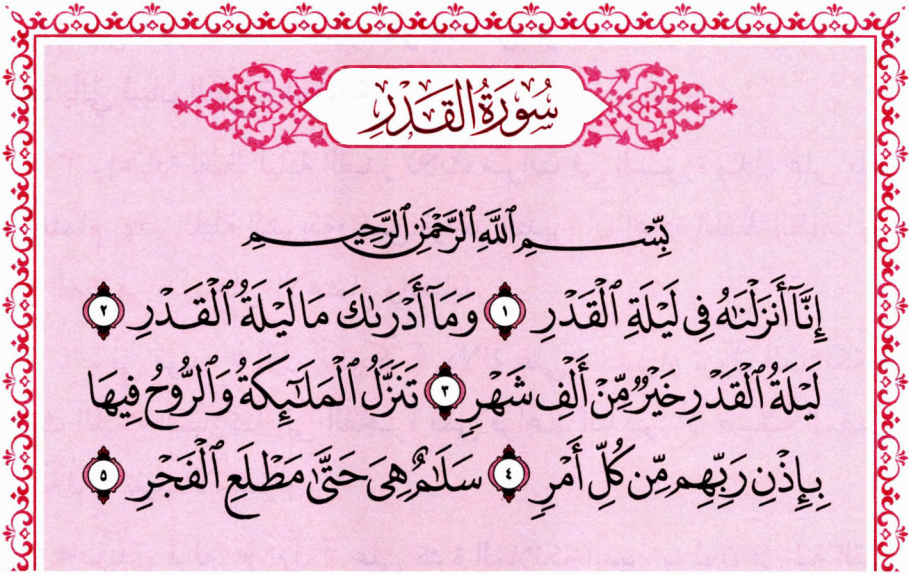 سُورَةُ القَدْرِ
بِسْمِ ٱللَّهِ ٱلرَّحْمَٰنِ ٱلرَّحِيمِ
إِنَّآ أَنزَلْنَٰهُ فِى لَيْلَةِ ٱلْقَدْرِ ١ وَمَآ أَدْرَىٰكَ مَا لَيْلَةُ ٱلْقَدْرِ ٢
لَيْلَةُ ٱلْقَدْرِ خَيْرٌ مِّنْ أَلْفِ شَهْرٍ ٣ تَنَزَّلُ ٱلْمَلَٰٓئِكَةُ وَٱلرُّوحُ فِيهَا
بِإِذْنِ رَبِّهِم مِّن كُلِّ أَمْرٍ ٤ سَلَٰمٌ هِىَ حَتَّىٰ مَطْلَعِ ٱلْفَجْرِ ٥